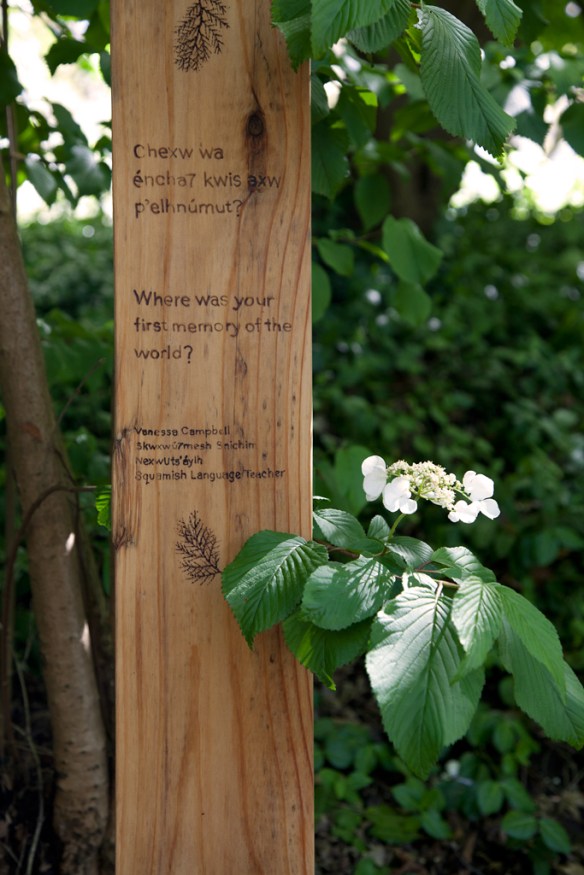 Chexw wa
éncha7 kwis axw
p'elhnúmut?
Where was your
first memory of the
world?
Vanessa Campbell
Skwxwú7mesh Sníchim
NexwUts'áylh
Squamish Language Teacher